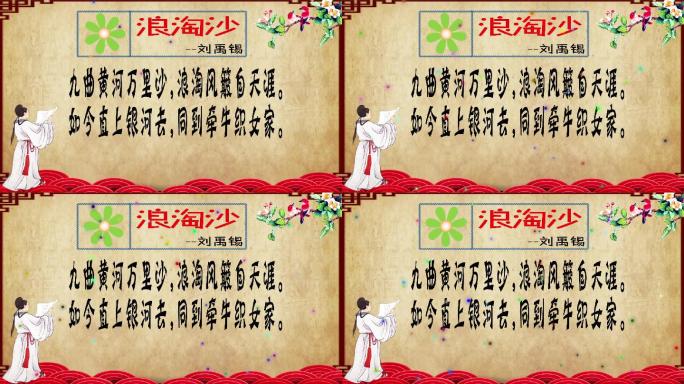 浪淘沙
--刘禹锡
九曲黄河万里沙,浪淘风簸自天涯。
如今直上银河去,同到牵牛织女家。
浪淘沙
--刘禹锡
九曲黄河万里沙,浪淘风簸自天涯。
如今直上银河去,同到牵牛织女家。
浪淘沙
--刘禹锡
九曲黄河万里沙,浪淘风簸自天涯。
如今直上银河去,同到牵牛织女家。
浪淘沙
--刘禹锡
九曲黄河万里沙,浪淘风簸自天涯。
如今直上银河去,同到牵牛织女家。